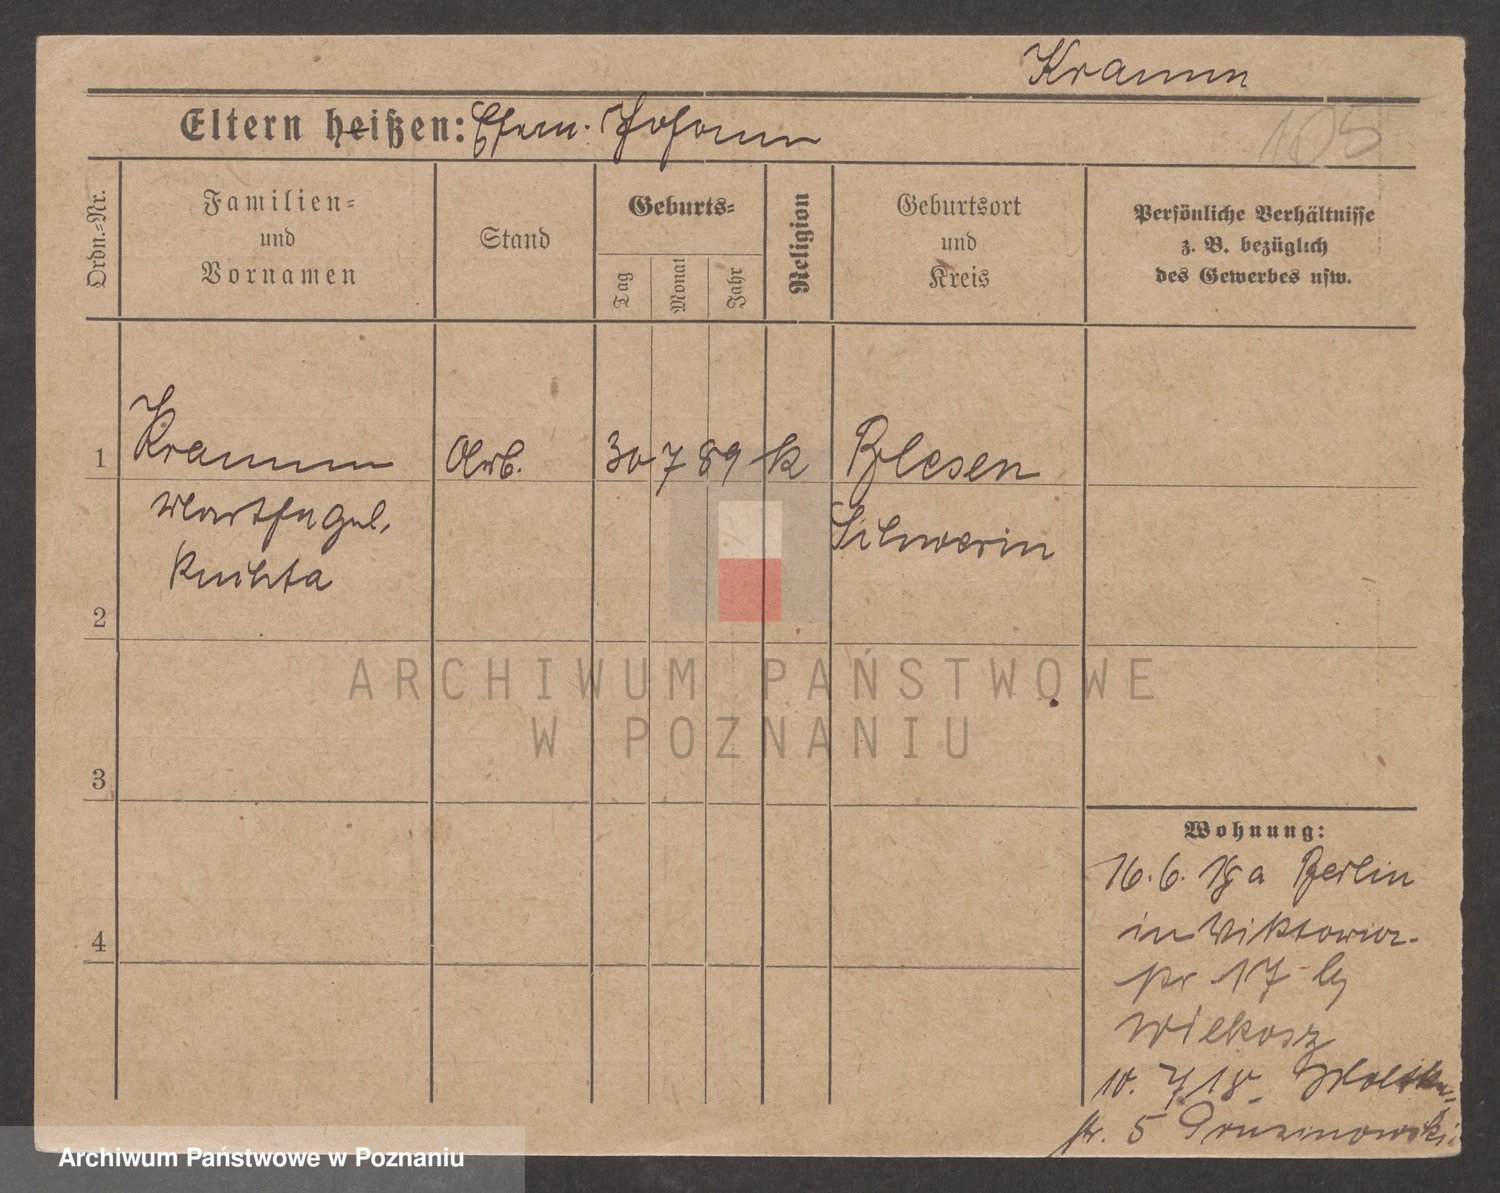 Kramm
Eltern heißen: Ehem. Johann
105
Ordn.-Nr.
Familien-
und
Vornamen
Stand
Geburts-
Tag
Monat
Jahr
Religion
Geburtsort
und
Kreis
Persönliche Verhältnisse
z. B. bezüglich
des Gewerbes usw.
1 Kramm Arb. 30 7 89 k Blesen
Schwerin
2
3
4
Wohnung:
16. 6. 18 a Berlin
in Wiktoria-
str 17 by
Wilkosz
10. 7 18
str. 5 Gruszinowski
ARCHIWUM PAŃSTWOWE
W POZNANIU
Archiwum Państwowe w Poznaniu